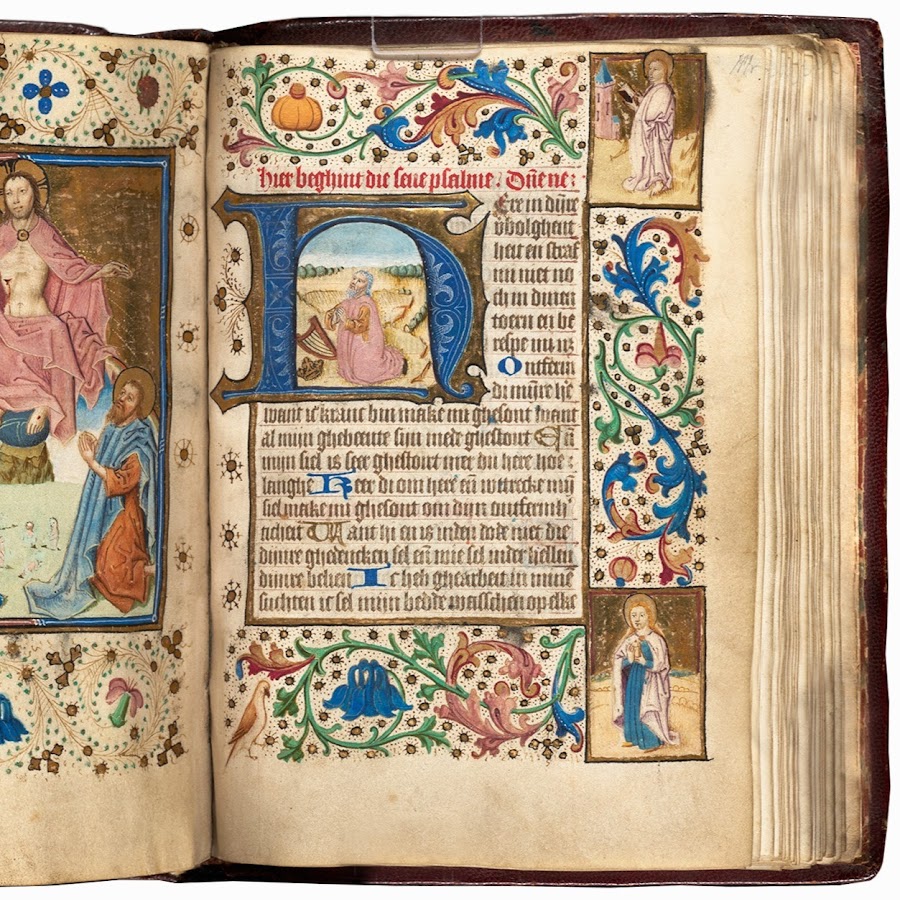 hier beghint die seue psalme. Dñe ne:
HEre in dijnre
v'volghent
heit en straf
mi niet no
ch in dinen
toern en be
respe mi nz
Ontferm
di mijnre he'
want ic kranc bin make mi ghesont want
al mijn ghebeente sijn mede ghestoirt Eñ
mijn siel is seer ghestoirt mer du here hoe:
langhe Keer di om here eñ v'trecke mijñ
siel make mi ghesont om dijn ontfermh'
ticheit Want hi en is inden dode niet die
dijnre ghedencken sel eñ wie sel inder hellen
dijnre belien Ic heb ghearbeit in mine
suchten ic sel mijn bedde wasschen op elke